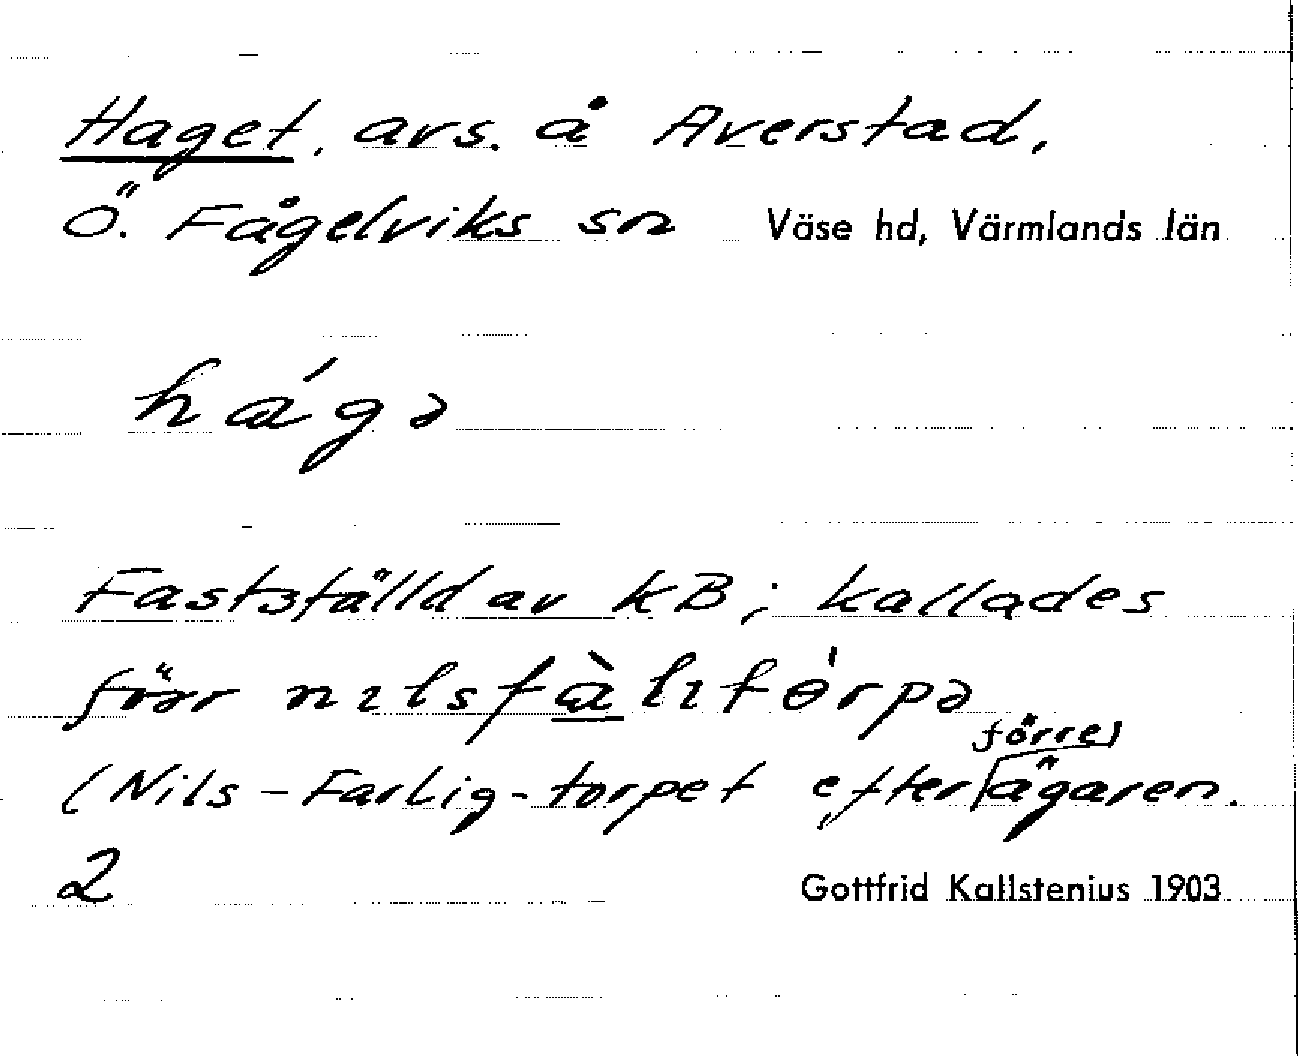 Haget, avs. å Averstad,
Ö. Fågelviks sn Väse hd, Värmlands län
há́gə
Fastställd av KB; kallades
förr nɪlsfà̱lɪtɵ́rpə
(Nils-Farlig-torpet efter förre ägaren.
2 Gottfrid Kallstenius 1903